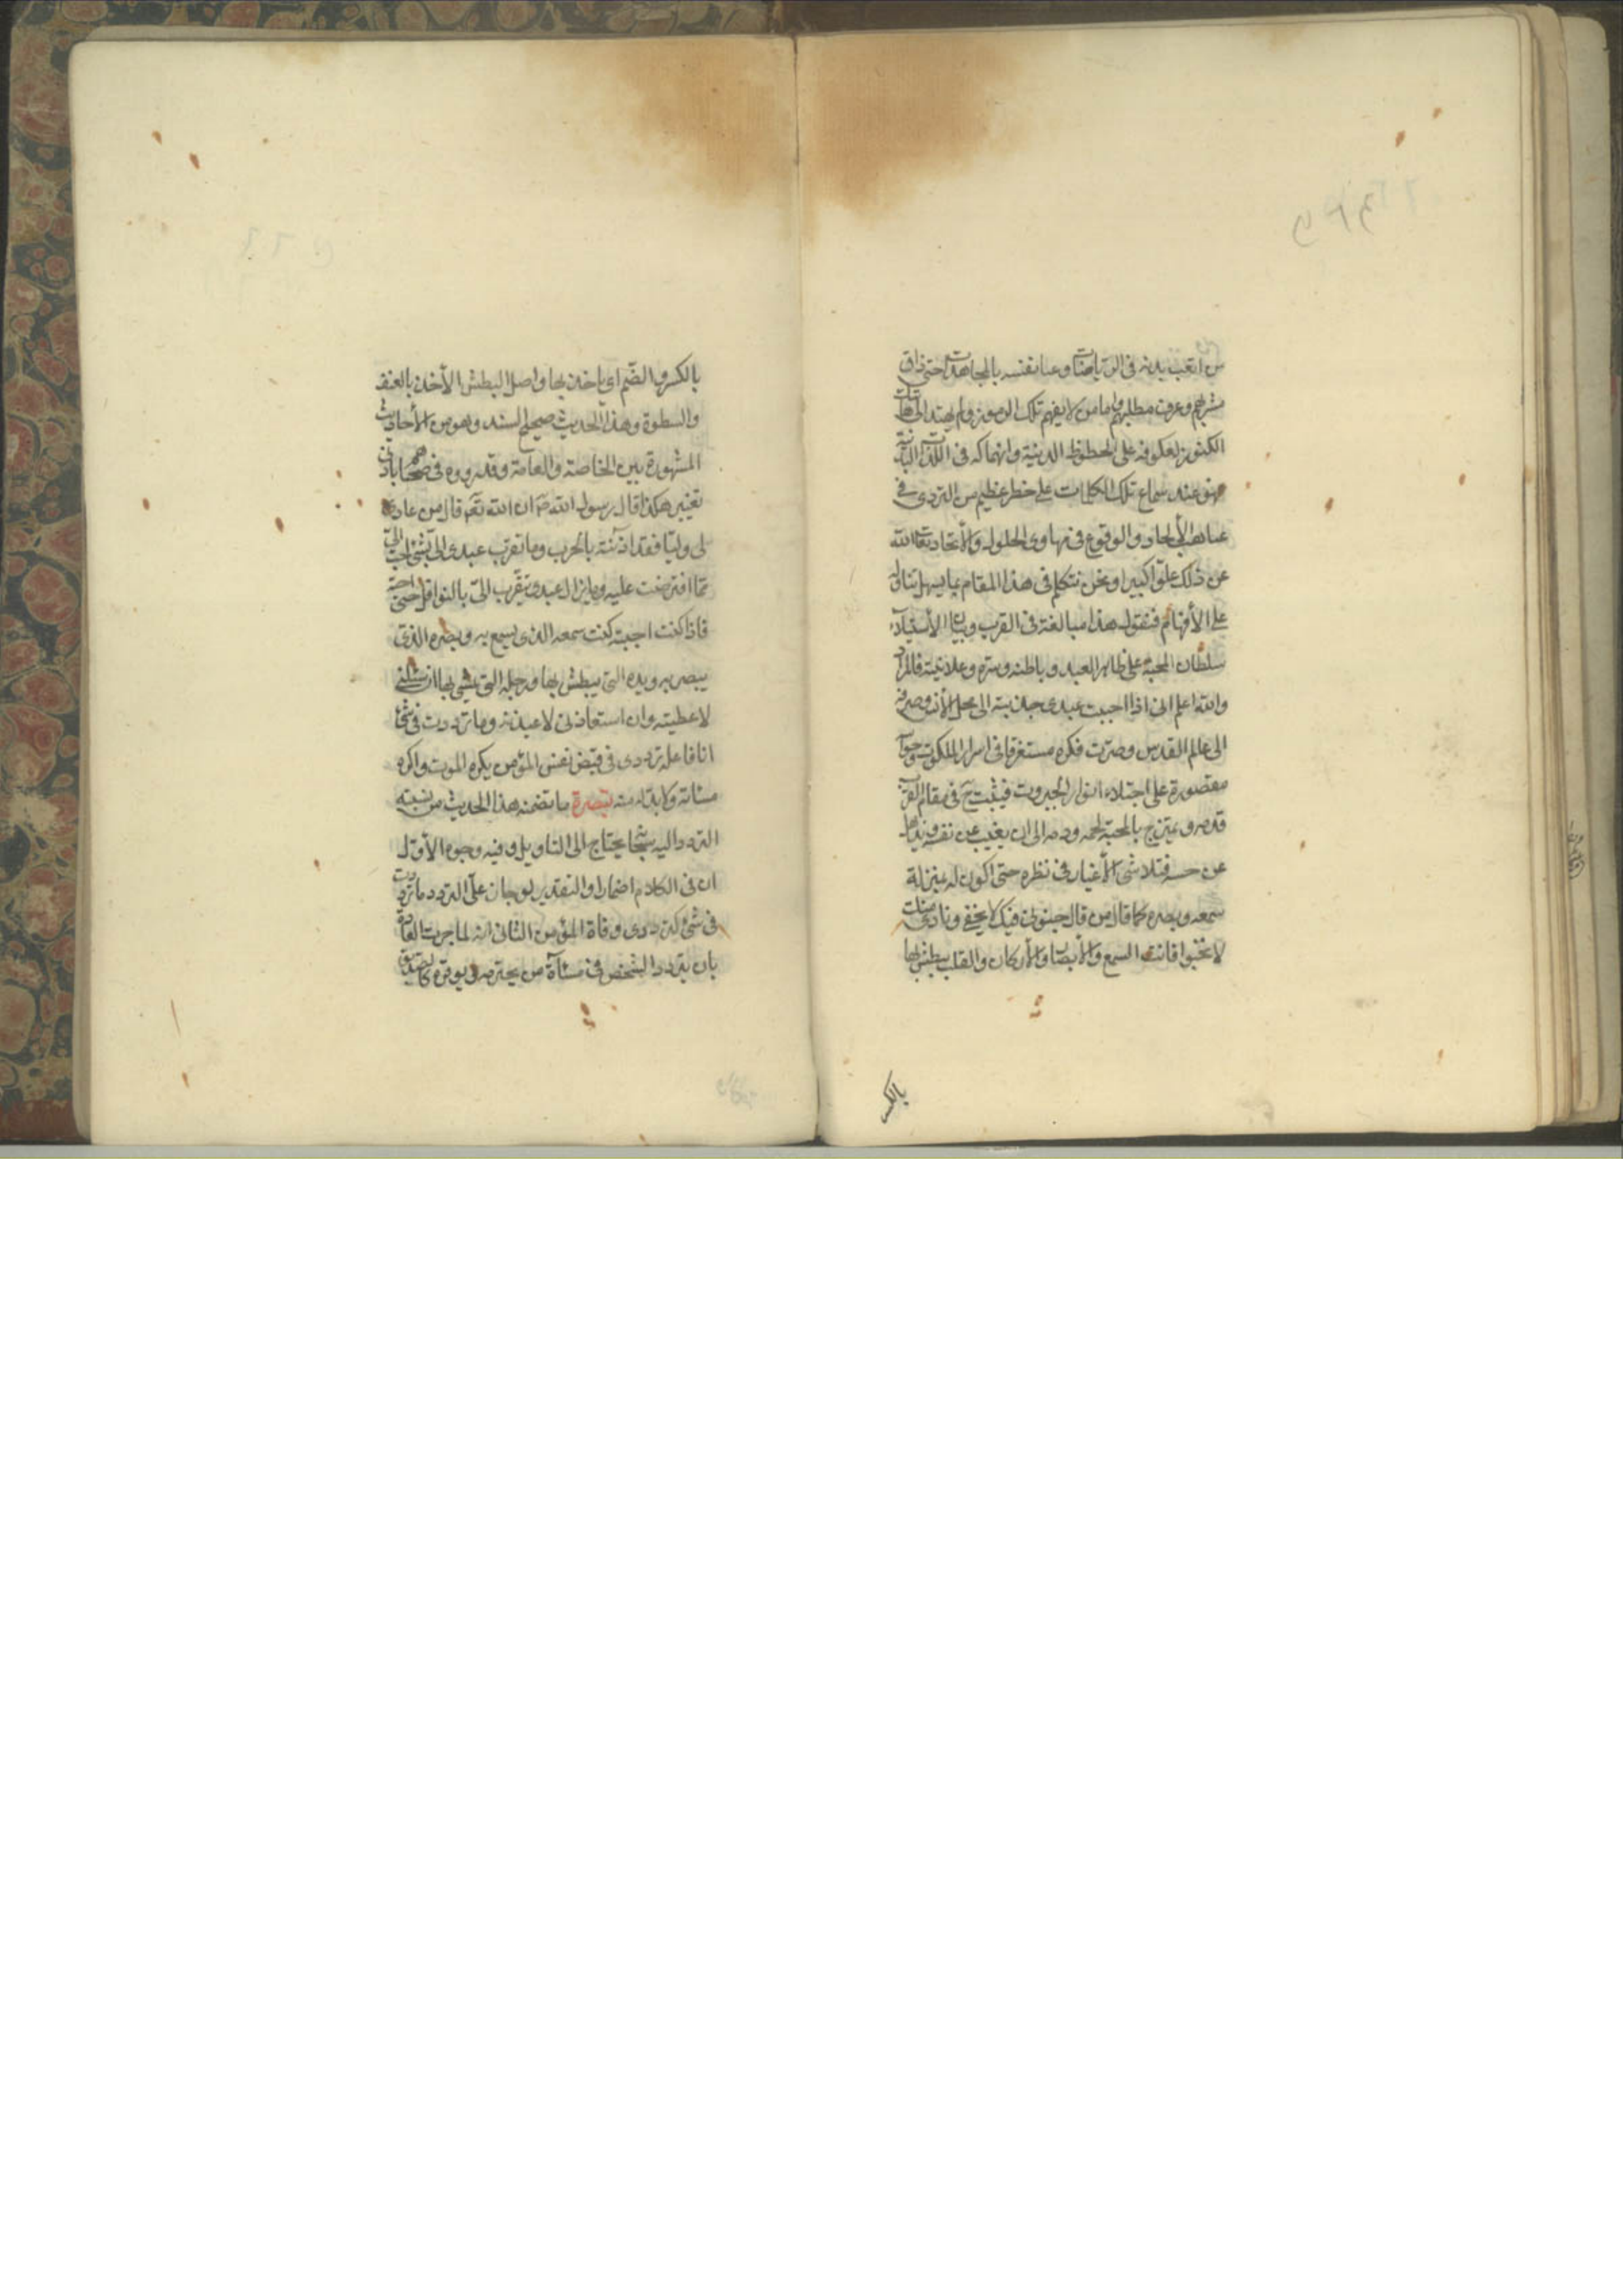 من اتعب بدنه في الرياضات وعنا نفسه بالمجاهدات حتى ذاق
مشربهم وعرف مطلبهم واما من لا يفهم تلك الرموز ولم يهتد الى هاتيك
الكنوز لعكوفه على الحظوظ الدنية وانهماكه في اللذات البدنية
فهو عند سماع تلك الكلمات على خطر عظيم من التردى في
غياهب الألحاد والوقوع في مهاوى الحلول والأتحاد تعالى الله
عن ذلك علوا كبيرا ونحن نتكلم في هذا المقام بما يسهل تناوله
على الأفهام فنقول هذا مبالغة في القرب وبيان الأستيلاء
سلطان المحبة على ظاهر العبد وباطنه وسره وعلانيته فالمراد
والله اعلم انى اذا احببت عبدى جذبته الى محل الأنس وصرفته
الى عالم القدس وصيرت فكره مستغرقا في اسرار الملكوت وحواسه
مقصورة على اجتلاء انوار الجبروت فيثبت ح في مقام القرب
قدمه ويمتزج بالمحبة لحمه ودمه الى ان يغيب عن نفسه ويذهل
عن حسه فتلاشى الأغيار في نظره حتى اكون له بمنزلة
سمعه وبصره كما قال من قال جنونى فيك لا يخفى ونارى منك
لا تخبوا فانت السمع والأبصار والأركان والقلب يبطش بها
بالكس
بالكسر والضم اى ياخذ بها واصل البطش الأخذ بالعنف
والسطوة وهذا الحديث صحيح السند وهو من الأحاديث
المشهورة بين الخاصة والعامة وقد رووه في صحاحهم بادنى
تغيير هكذا قال رسول الله ص ان الله تعم قال من عادى
لى وليا فقد اذنته بالحرب وما تقرب عبدى الى بشئ احب الى
مما افترضت عليه وما يزال عبدى يتقرب الى بالنوافل حتى احبه
فاذا كنت احببته كنت سمعه الذى يسمع به وبصره الذى
يبصر به ويده التى يبطش بها ورجله التى يمشى بها ان سئلنى
لاعطيته وان استعاذنى لاعيذنه وما ترددت في شئ
انا فاعله ترددى في قبض نفس المؤمن يكره الموت واكره
مسائته ولا بد له منه تبصرة ما تضمنه هذا الحديث من نسبته
التردد اليه سبحانه يحتاج الى التاويل وفيه وجوه الأول
ان في الكلام اضمارا والتقدير لو جاز على التردد ما ترددت
في شئ كترددى في وفاة المؤمن الثانى انه لما جرت العادة
بان يتردد الشخص في مسائة من يحترمه ويوقره كالصديق